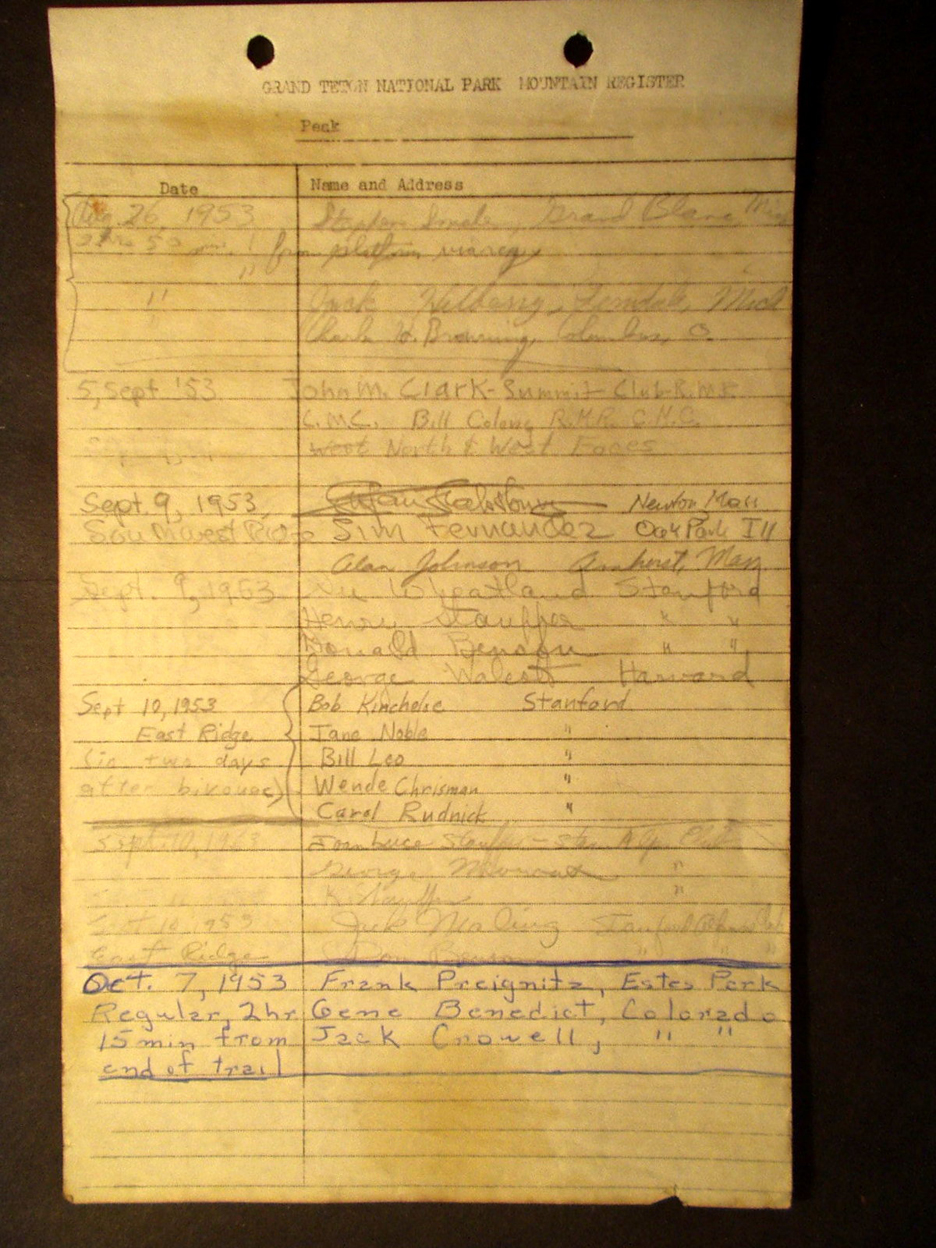 GRAND TETON NATIONAL PARK MOUNTAIN REGISTER
Peak
Date Name and Address
Aug. 26, 1953 Stephen Grand Blanc, Mich
2 hrs 50 min. from platform
" Jack Ferndale, Mich
" H. Browning, Columbus, O.
5, Sept '53 John M. Clark - Summit Club-R.M.R.
C.M.C. Bill Colony R.M.R. C.M.C.
West North & West Faces
Sept. 9, 1953, Newton, Mass
Southwest Ridge Sim Fernandez Oak Park Ill
Alan Johnson Amherst, Mass
Sept. 9, 1953 Wheatland Stanford
Henry Stauffer " "
Donald Benson " "
George Harvard
Sept 10, 1953 Bob Stanford
East Ridge Jane Noble "
(in two days Bill Leo "
after bivouac) Wende Chrisman "
Carol Rudnick "
Sept. 10, 1953
George "
K. Stauffer "
Sept 10 1953 Jack
East Ridge Don Benson " "
Oct. 7, 1953 Frank Preignitz, Estes Park
Regular, 2hr Gene Benedict, Colorado
15 min from Jack Crowell, " "
end of trail